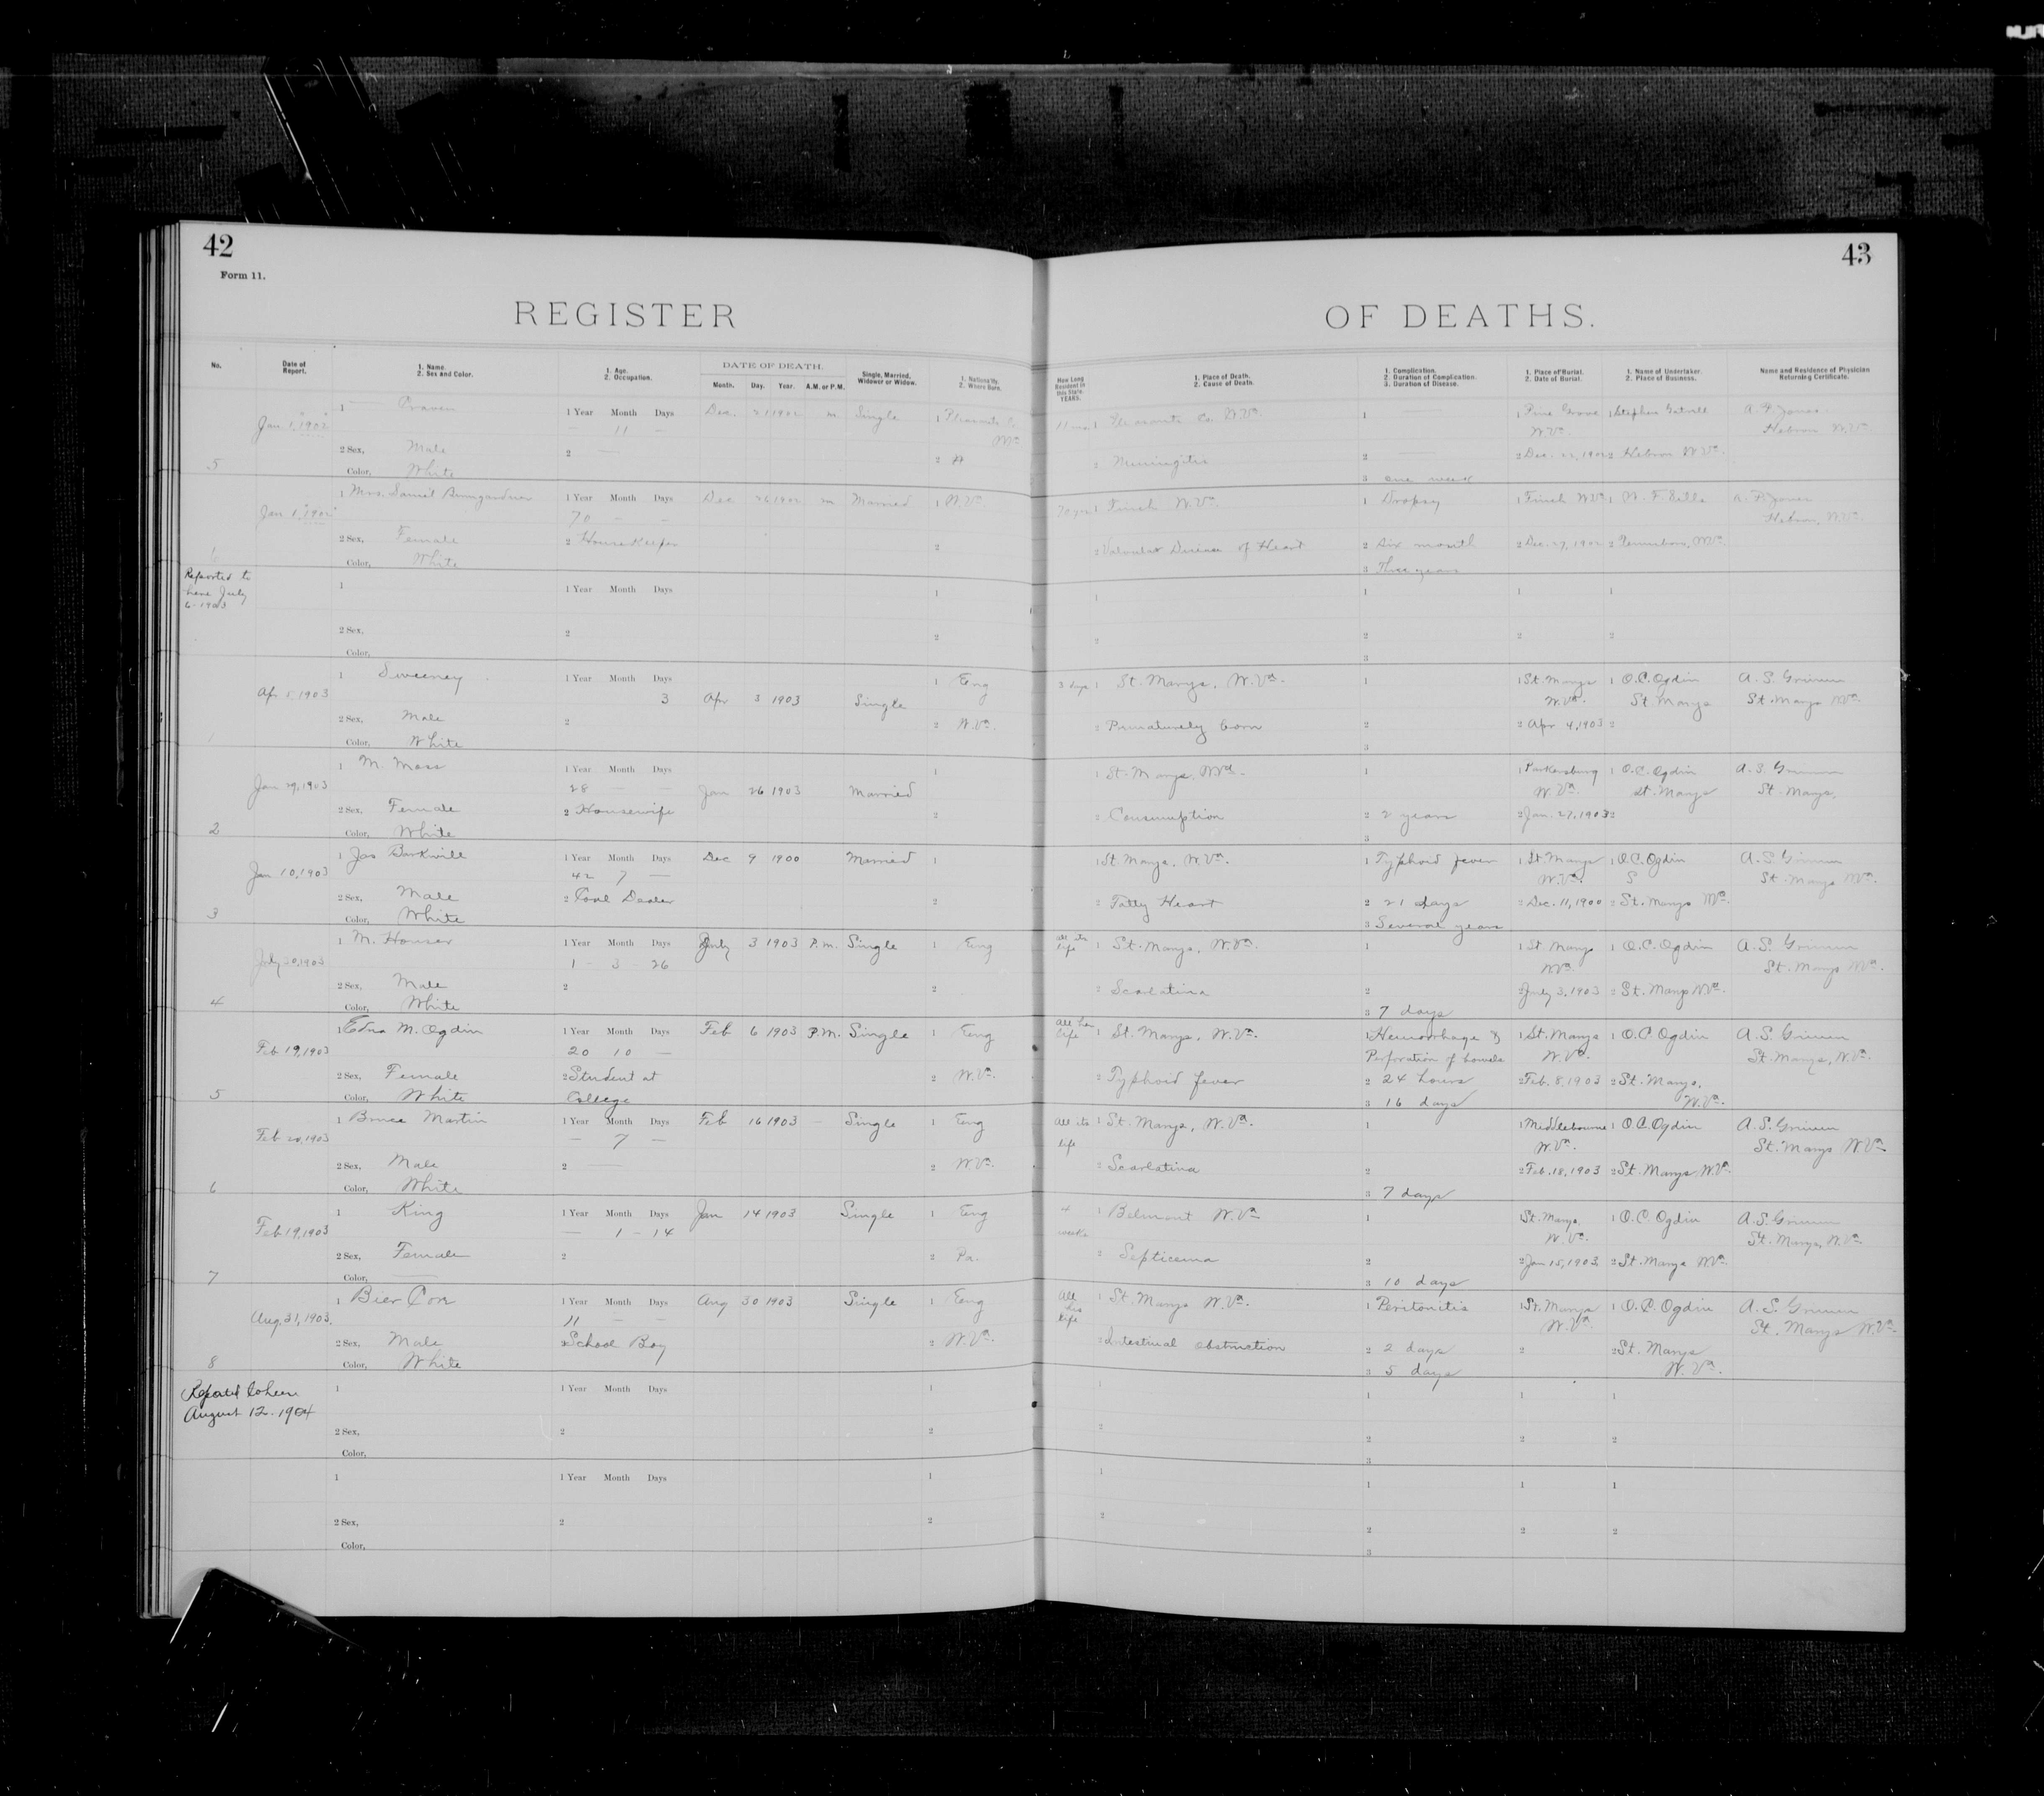 42
Form 11.
REGISTER
No.
Date of Report.
1. Name.
2. Sex and Color.
1. Age.
2. Occupation.
DATE OF DEATH.
Month. Day. Year. A.M. or P.M.
Single, Married, Widower or Widow.
1. Nationality.
2. Where Born.
43
OF DEATHS.
How Long Resident in this State. YEARS.
1. Place of Death.
2. Cause of Death.
1. Complication.
2. Duration of Complication.
3. Duration of Disease.
1. Place of Burial.
2. Date of Burial.
1. Name of Undertaker.
2. Place of Business.
Name and Residence of Physician Returning Certificate.
5 Jan 1, 1902 1 Craven 1 Year Month Days Dec. 21 1902 m Single 1 Pleasants Co
— 11 — W.Va
2 Sex, Male 2 —
Color, White
1 Pleasants Co. W.Va. 1 — 1 Pine Grove 1 Stephen A. P. Jones
W.Va. Hebron W.Va.
2 Meningitis 2 — 2 Dec. 22, 1902 2 Hebron W.Va.
3 one week
Jan 1, 1902 1 Mrs. Saml Bumgardner 1 Year Month Days Dec 26 1902 m Married 1 W.Va.
70 — —
2 Sex, Female 2 House Keeper 2
Color, White
70 yrs 1 Finch W.Va. 1 Dropsy 1 Finch W.Va. 1 A. P. Jones
Hebron, W.Va.
2 Valvular Disease of Heart 2 Six month 2 Dec. 27, 1902 2
3 Three years
Reported to
here July
6-1903
1 1 Year Month Days 1
2 Sex, 2 2
Color,
1 1 1 1
2 2 2 2
3
1 Apr 5 1903 1 Sweeney 1 Year Month Days 1 Eng
3 Apr 3 1903 Single
2 Sex, Male 2 2 W.Va.
Color, White
3 days 1 St. Marys, W.Va. 1 1 St. Marys 1 O.C. Ogdin A. S. Grimm
W.Va. St. Marys St. Marys W.Va.
2 Prematurely born 2 2 Apr 4, 1903 2
3
2 Jan 29, 1903 1 M. Moss 1 Year Month Days 1
28 — — Jan 26 1903 Married
2 Sex, Female 2 Housewife 2
Color, White
1 St. Marys, W.Va. 1 1 Parkersburg 1 O.C. Ogdin A. S. Grimm
W.Va. St. Marys St. Marys.
2 Consumption 2 2 years 2 Jan. 27, 1903 2
3
3 Jan 10, 1903 1 Jas Barkwill 1 Year Month Days Dec 9 1900 Married 1
42 7 —
2 Sex, Male 2 Coal Dealer 2
Color, White
1 St Marys, W.Va. 1 Typhoid fever 1 St. Marys 1 O.C. Ogdin A. S. Grimm
W.Va. S St. Marys W.Va.
2 Fatty Heart 2 21 days 2 Dec. 11, 1900 2 St. Marys W.Va.
3 Several years
4 July 20, 1903 1 M. Houser 1 Year Month Days July 3 1903 P.M. Single 1 Eng
1 - 3 - 26
2 Sex, Male 2 2
Color, White
all its life 1 St. Marys, W.Va. 1 1 St Marys 1 O.C. Ogdin A. S. Grimm
W.Va. St. Marys W.Va.
2 Scarlatina 2 2 July 3, 1903 2 St. Marys W.Va.
3 7 days
5 Feb 19, 1903 1 Edna M. Ogdin 1 Year Month Days Feb 6 1903 P.M. Single 1 Eng
20 10 —
2 Sex, Female 2 Student at 2 W.Va.
Color, White College
All her life 1 St. Marys, W.Va. 1 Hemorrhage & 1 St. Marys 1 O.C. Ogdin A. S. Grimm
Perforation of bowels W.Va. St. Marys, W.Va.
2 Typhoid fever 2 24 hours 2 Feb. 8, 1903 2 St. Marys,
3 16 days W.Va.
6 Feb 20, 1903 1 Bruce Martin 1 Year Month Days Feb 16 1903 — Single 1 Eng
— 7 —
2 Sex, Male 2 — 2 W.Va.
Color, White
All its life 1 St. Marys, W.Va. 1 1 Middlebourne 1 O.C. Ogdin A. S. Grimm
W.Va. St. Marys W.Va
2 Scarlatina 2 2 Feb. 18, 1903 2 St. Marys W.Va
3 7 days
7 Feb 19, 1903 1 King 1 Year Month Days Jan 14 1903 Single 1 Eng
— 1 - 14
2 Sex, Female 2 2 Pa.
Color, —
4 weeks 1 Belmont W.Va 1 St. Marys, 1 O.C. Ogdin A. S. Grimm
W.Va. St. Marys, W.Va.
2 Septicema 2 2 Jan 15, 1903 2 St. Marys W.Va.
3 10 days
8 Aug. 31, 1903. 1 Bier Corr 1 Year Month Days Aug 30 1903 Single 1 Eng
11 — —
2 Sex, Male 2 School Boy 2 W.Va.
Color, White
All his life 1 St. Marys W.Va. 1 Peritonitis 1 St. Marys 1 O.C. Ogdin A. S. Grimm
W.Va. St. Marys W.Va.
2 Intestinal obstruction 2 2 days 2 2 St. Marys
3 5 days W.Va.
August 12-1904
1 1 Year Month Days 1
2 Sex, 2 2
Color,
1 1 1 1
2 2 2 2
3
1 1 Year Month Days 1
2 Sex, 2 2
Color,
1 1 1 1
2 2 2 2
3